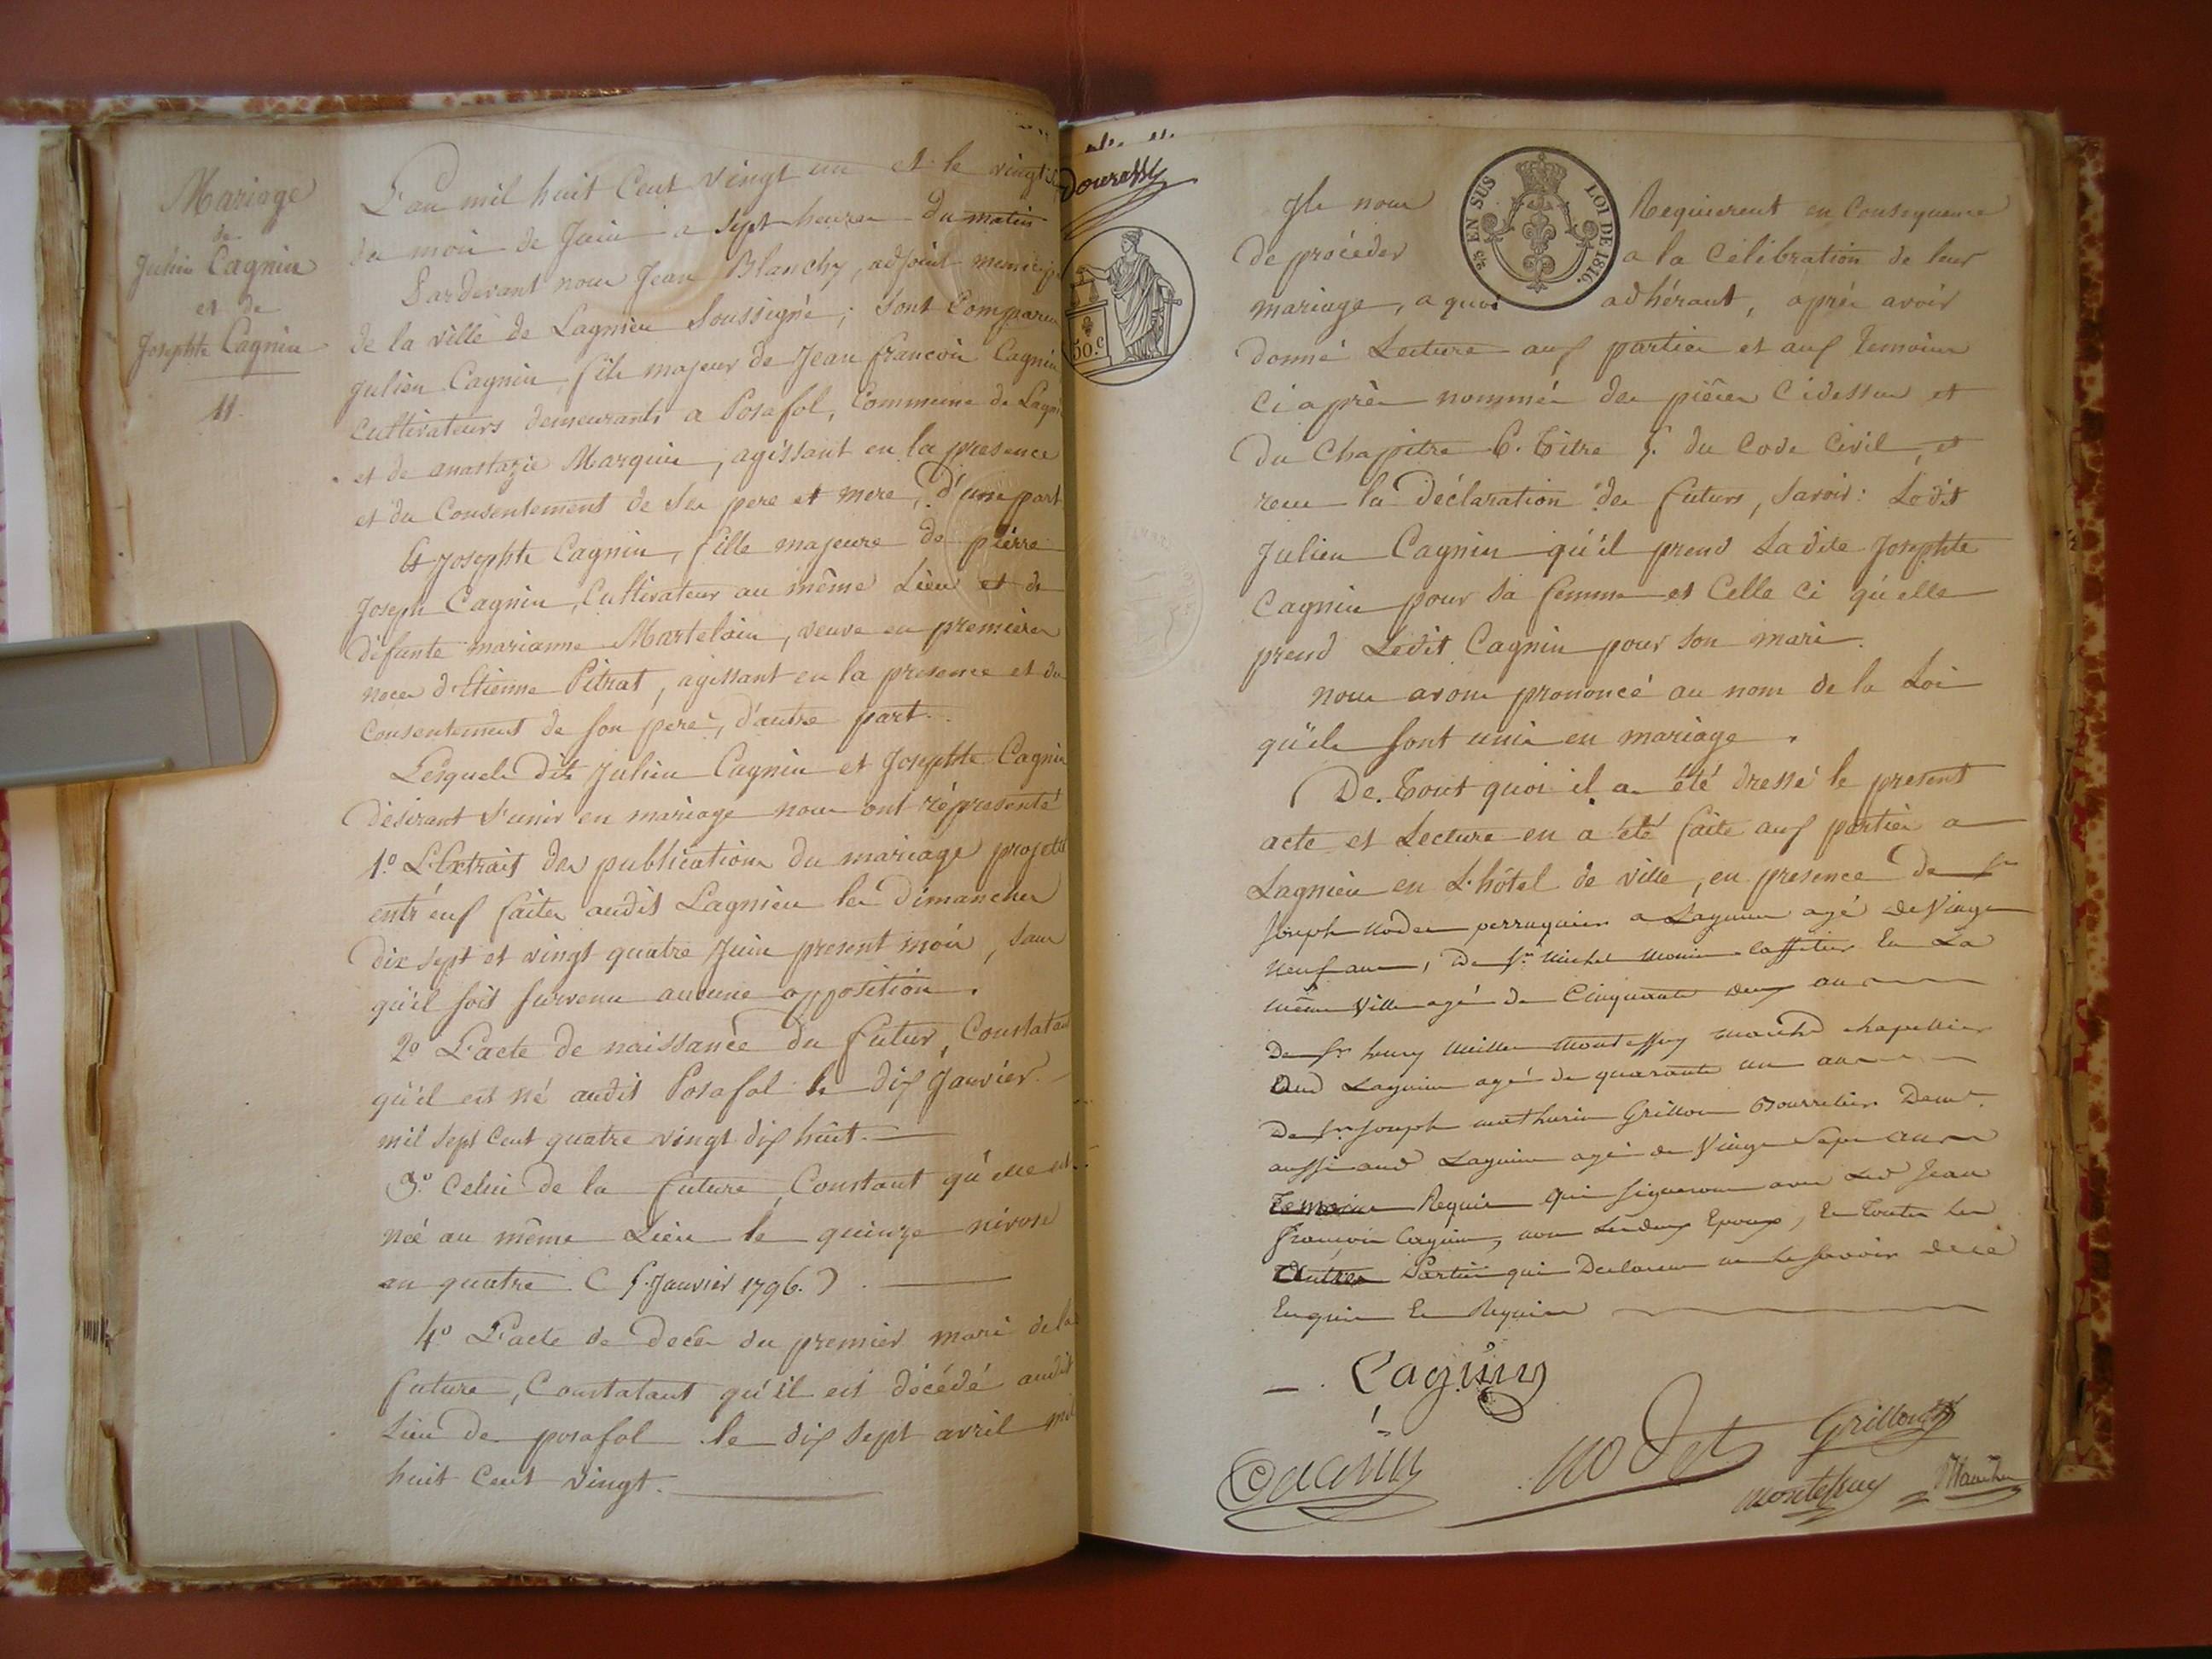 Mariage
de
Julien Cagnin
et de
Josephte Cagnin
11.
L'an mil huit Cent vingt un et le vingt
du mois de Juin a sept heures du matin
Pardevant nous Jean Blanchy, adjoint municip
de la ville de Lagnieu Soussigné; sont Comparus
Julien Cagnin, fils majeur de Jean francois Cagnin
Cultivateurs demeurants a Posafol, Commune de Lagni
et de anastazie Marguin, agissant en la presence
et du Consentement de Ses pere et mere, d'une part
Et Josephte Cagnin, fille majeure de pierre
Joseph Cagnin, Cultivateur au même Lieu et de
défunte marianne Martelain, veuve en premieres
noces d'Etienne Pitrat, agissant en la presence et du
Consentement de son pere, d'autre part.
Lesquels dits Julien Cagnin et Josephte Cagnin
désirant s'unir en mariage nous ont réprésenté
1.º L'Extrait des publications du mariage projetté
entr'eux faites audit Lagnieu les Dimanches
dix sept et vingt quatre Juin present mois, sans
qu'il soit survenu aucune opposition.
2º L'acte de naissance du futur, Constatant
qu'il est né audit Posafol le dix Janvier
mil sept Cent quatre vingt dix huit.
3.º Celui de la future, Constant qu'elle est
née au même Lieu le quinze nivose
an quatre (5. Janvier 1796.)
4º L'acte de deces du premier mari de la
future, Constatant qu'il est décédé audit
Lieu de posafol le dix sept avril mil
huit Cent vingt.
50.c
2/5 EN SUS LOI DE 1816.
Ils nous Requierent en Consequence
de procéder a la Célébration de leur
mariage, a quoi adhérant, après avoir
donné Lecture aux parties et aux temoins
Ci après nommés des pièces Cidessus et
du Chapitre 6. Titre 5. du Code Civil, et
recu la déclaration des futurs, Savoir: Ledit
Julien Cagnin qu'il prend Ladite Josephte
Cagnin pour sa femme et Celle ci qu'elle
prend Ledit Cagnin pour son mari.
nous avons prononcé au nom de la Loi
qu'ils sont unis en mariage.
De Tout quoi il a été dressé le present
acte et Lecture en a été faite aux parties a
Lagnieu en L'hôtel de ville, en presence de Sr
Joseph Nodet perruquier a Lagnieu agé de Vingt
Neuf ans, De Sr. Michel Monin Caffetier En La
même Ville agé de Cinquante deux ans
De Sr henry Montessuy march'd chapellier
Aud Lagnieu agé de quarante un ans
De Sr Joseph mathurin Grillon Bourrelier Demt.
aussi aud Lagnieu agé de Vingt Sept ans
Temoins Requis qui signeront avec Led Jean
François Cagnin, non Lesdeux Epoux, Et Toutes Les
Autres Parties qui Declarent ne le savoir de ce
Enquis Et Requis
Cagnin
Cagnin
Nodet
Grillon
Montessuy
Blanchy